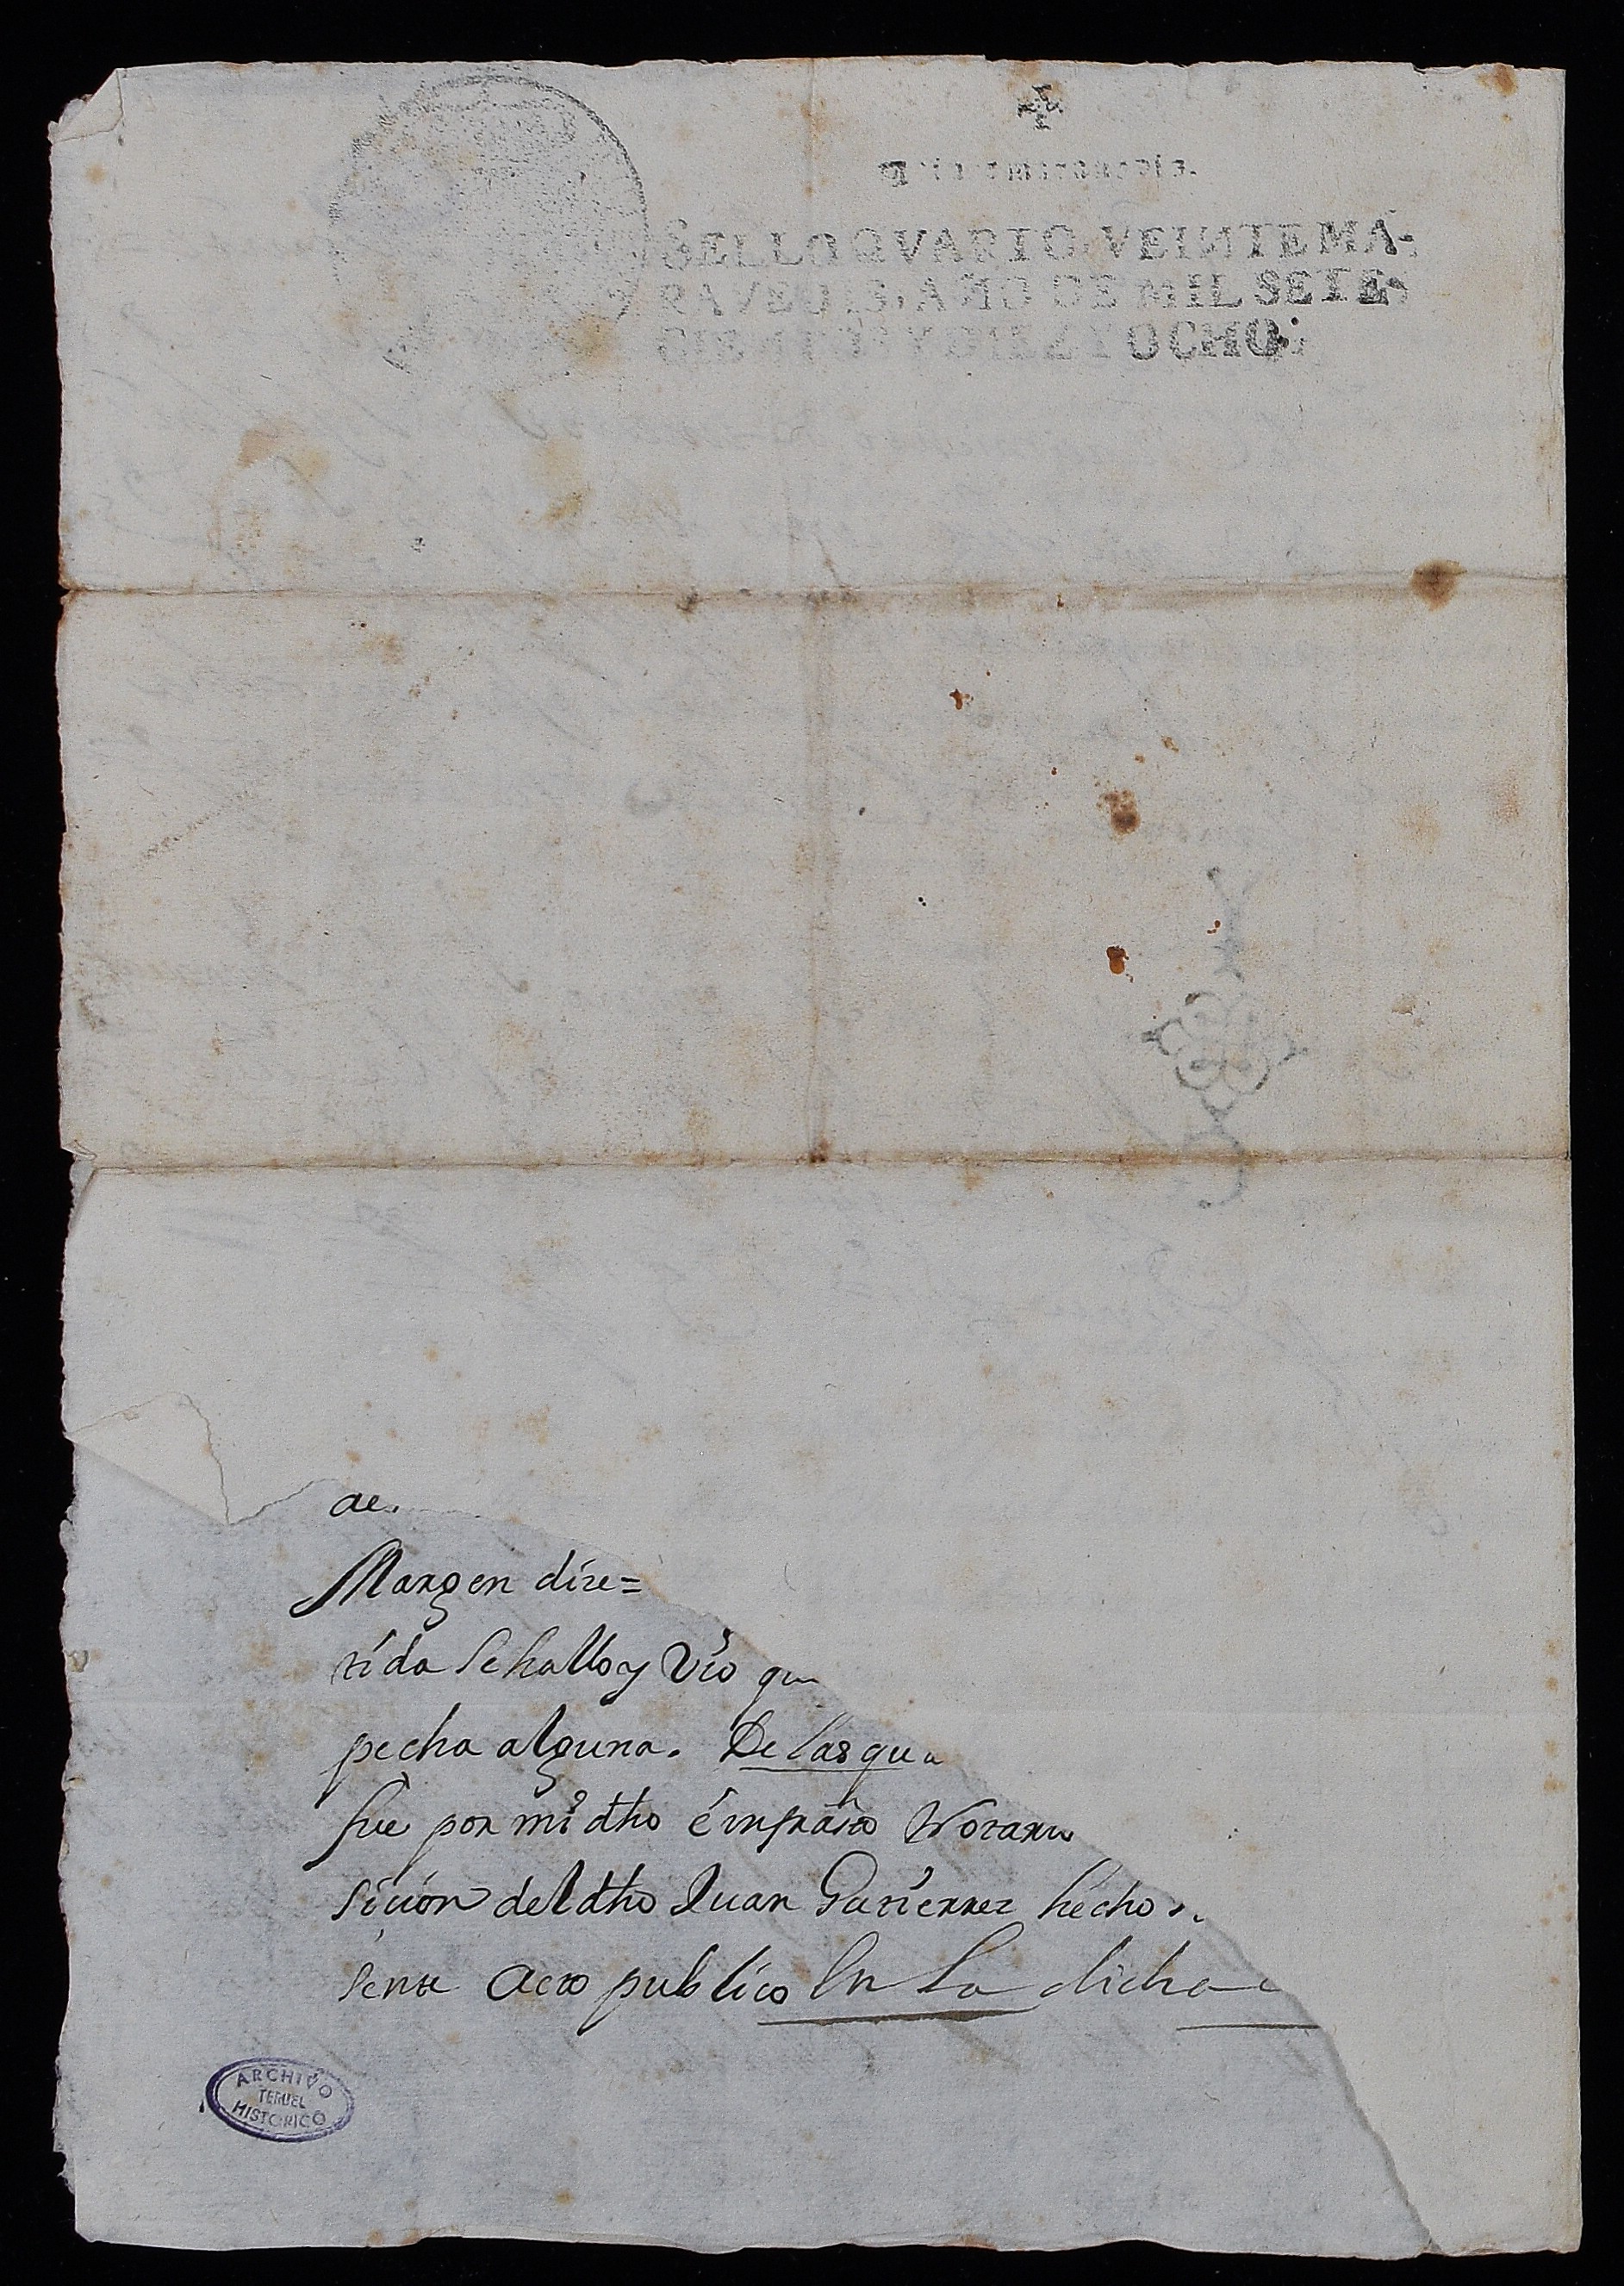 SELLO QVARTO, VEINTE MA-
RAVEDIS, AÑO DE MIL SETE-
CIENTOS Y DIEZ Y OCHO.
de.
Margen dize=
rida se hallo y Vio qu
pecha alguna. De las qua
fue por mi dho
sicion del dho Juan Gutierrez hecho
sente Acto publico En La dicha
ARCHIVO
TERUEL
HISTORICO